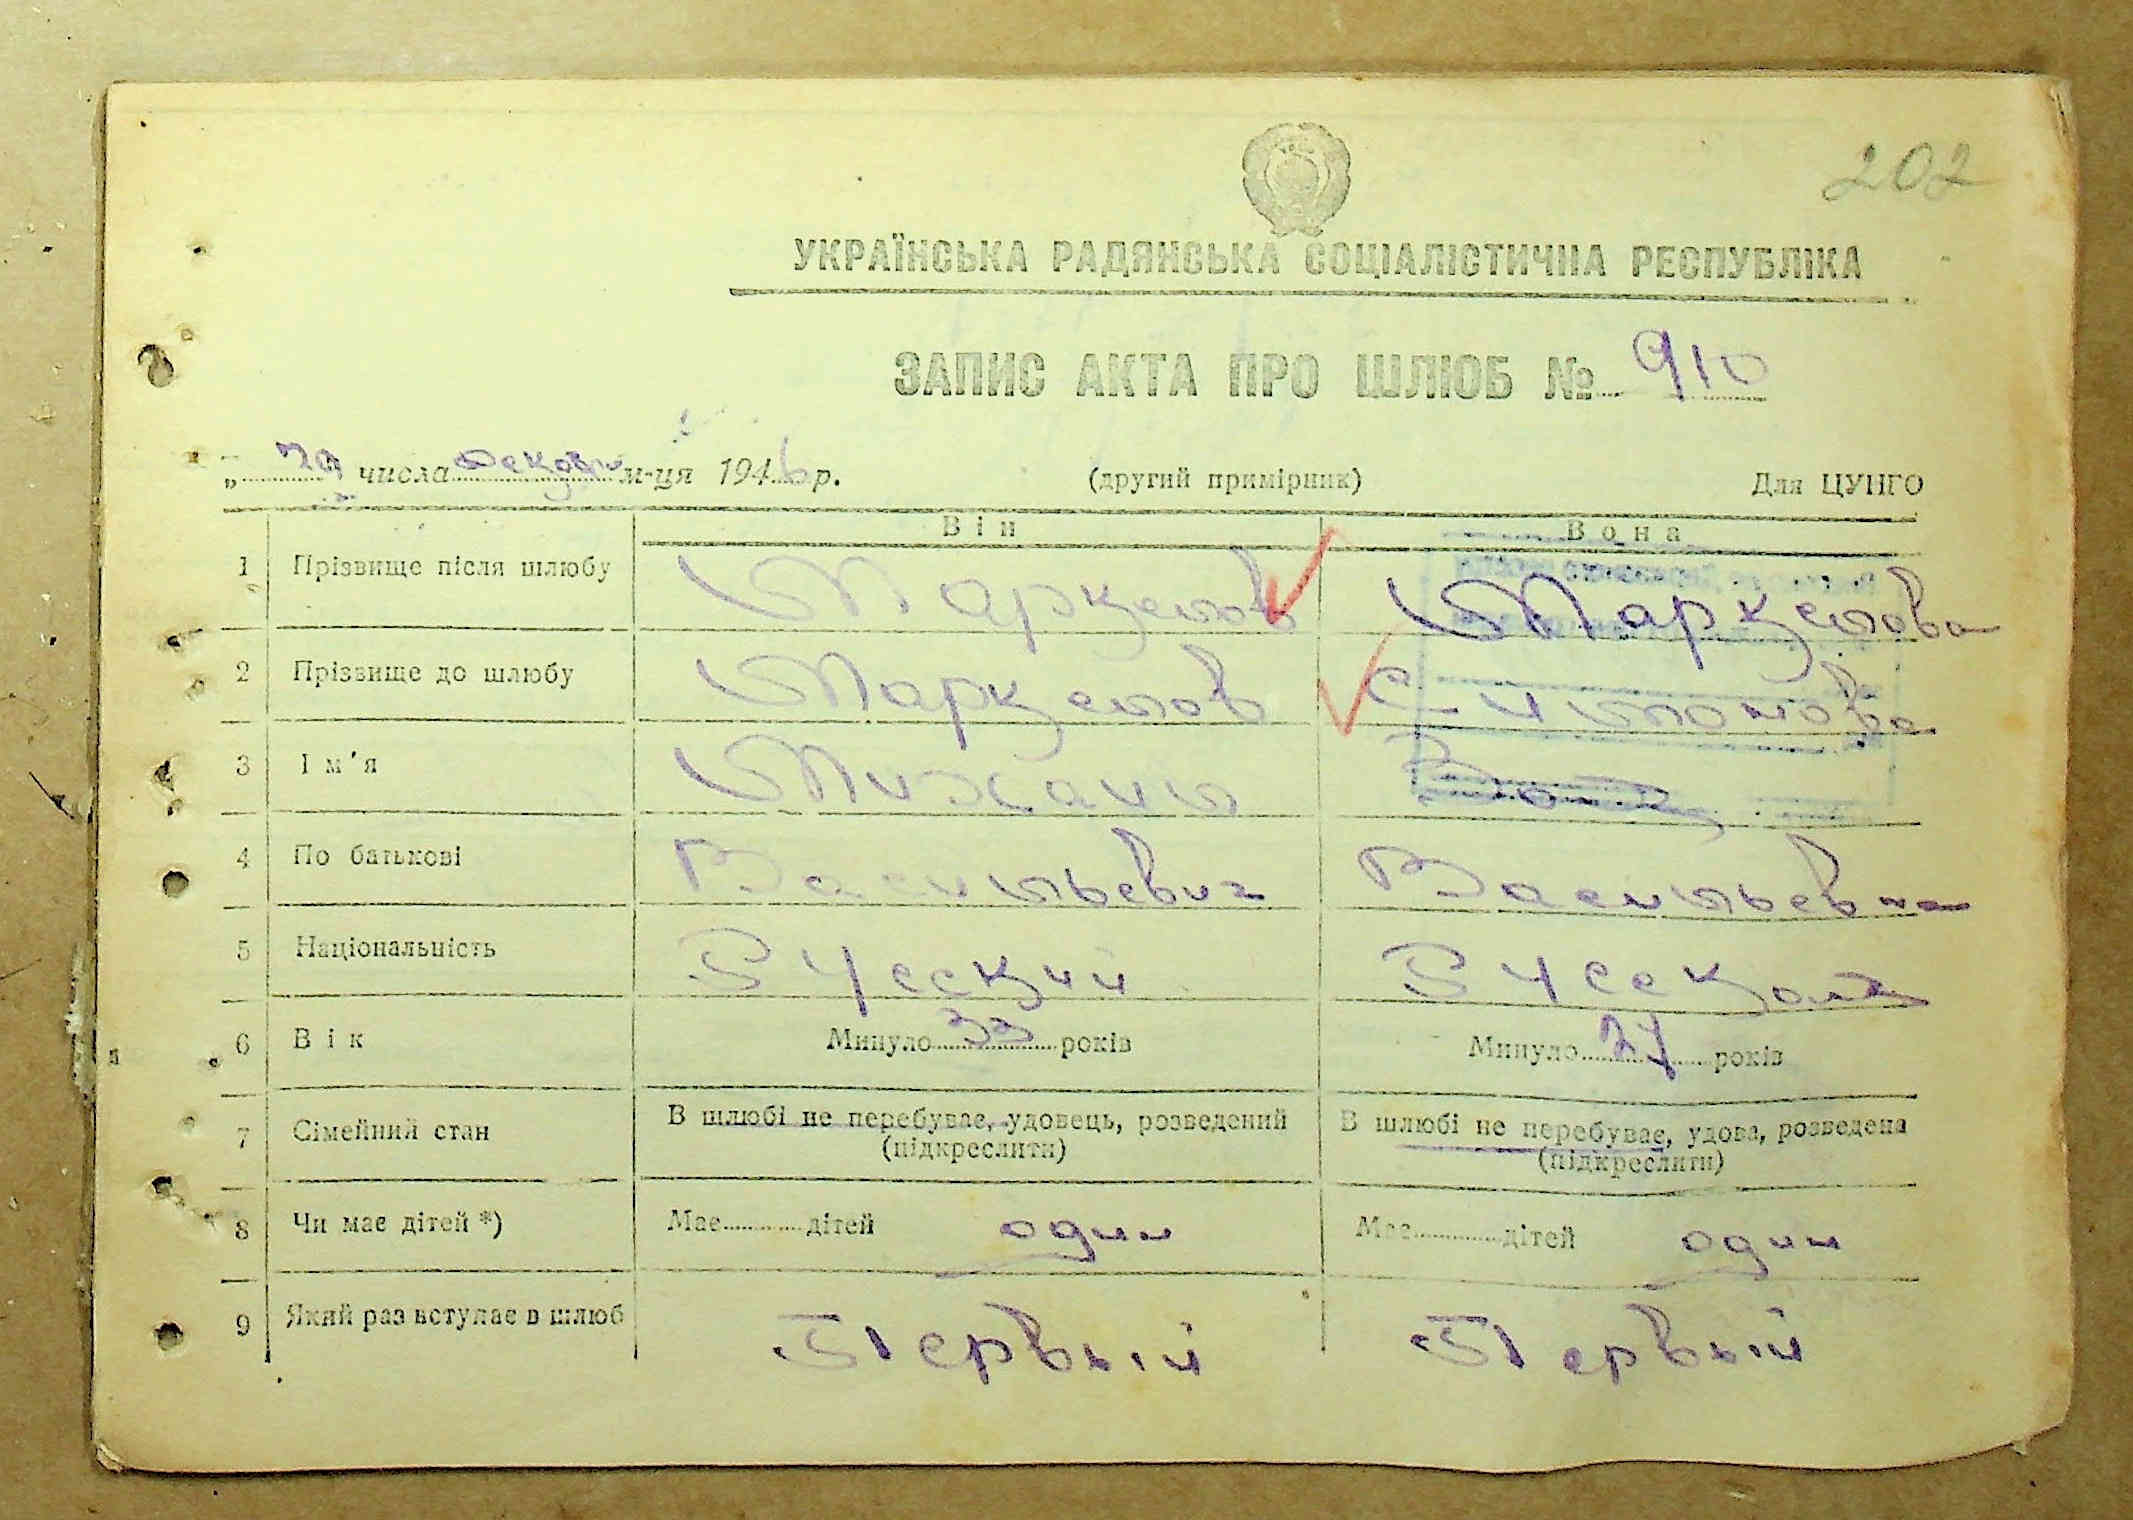 202
УКРАЇНСЬКА РАДЯНСЬКА СОЦІАЛІСТИЧНА РЕСПУБЛІКА
ЗАПИС АКТА ПРО ШЛЮБ № 910
„ числа декабря м-ця 1946 р. (другий примірник) Для ЦУНГО
Він Вона
1 Прізвище після шлюбу Маркелов Маркелова
2 Прізвище до шлюбу Маркелов Симонова
3 Ім'я Михаил
4 По батькові Васильевич Васильевна
5 Національність Русский Русская
6 Вік Минуло 33 років Минуло 27 років
7 Сімейний стан В шлюбі не перебуває, удовець, розведений В шлюбі не перебуває, удова, розведена
(підкреслити) (підкреслити)
8 Чи має дітей *) Має дітей один Має дітей один
9 Який раз вступає в шлюб Первый Первый